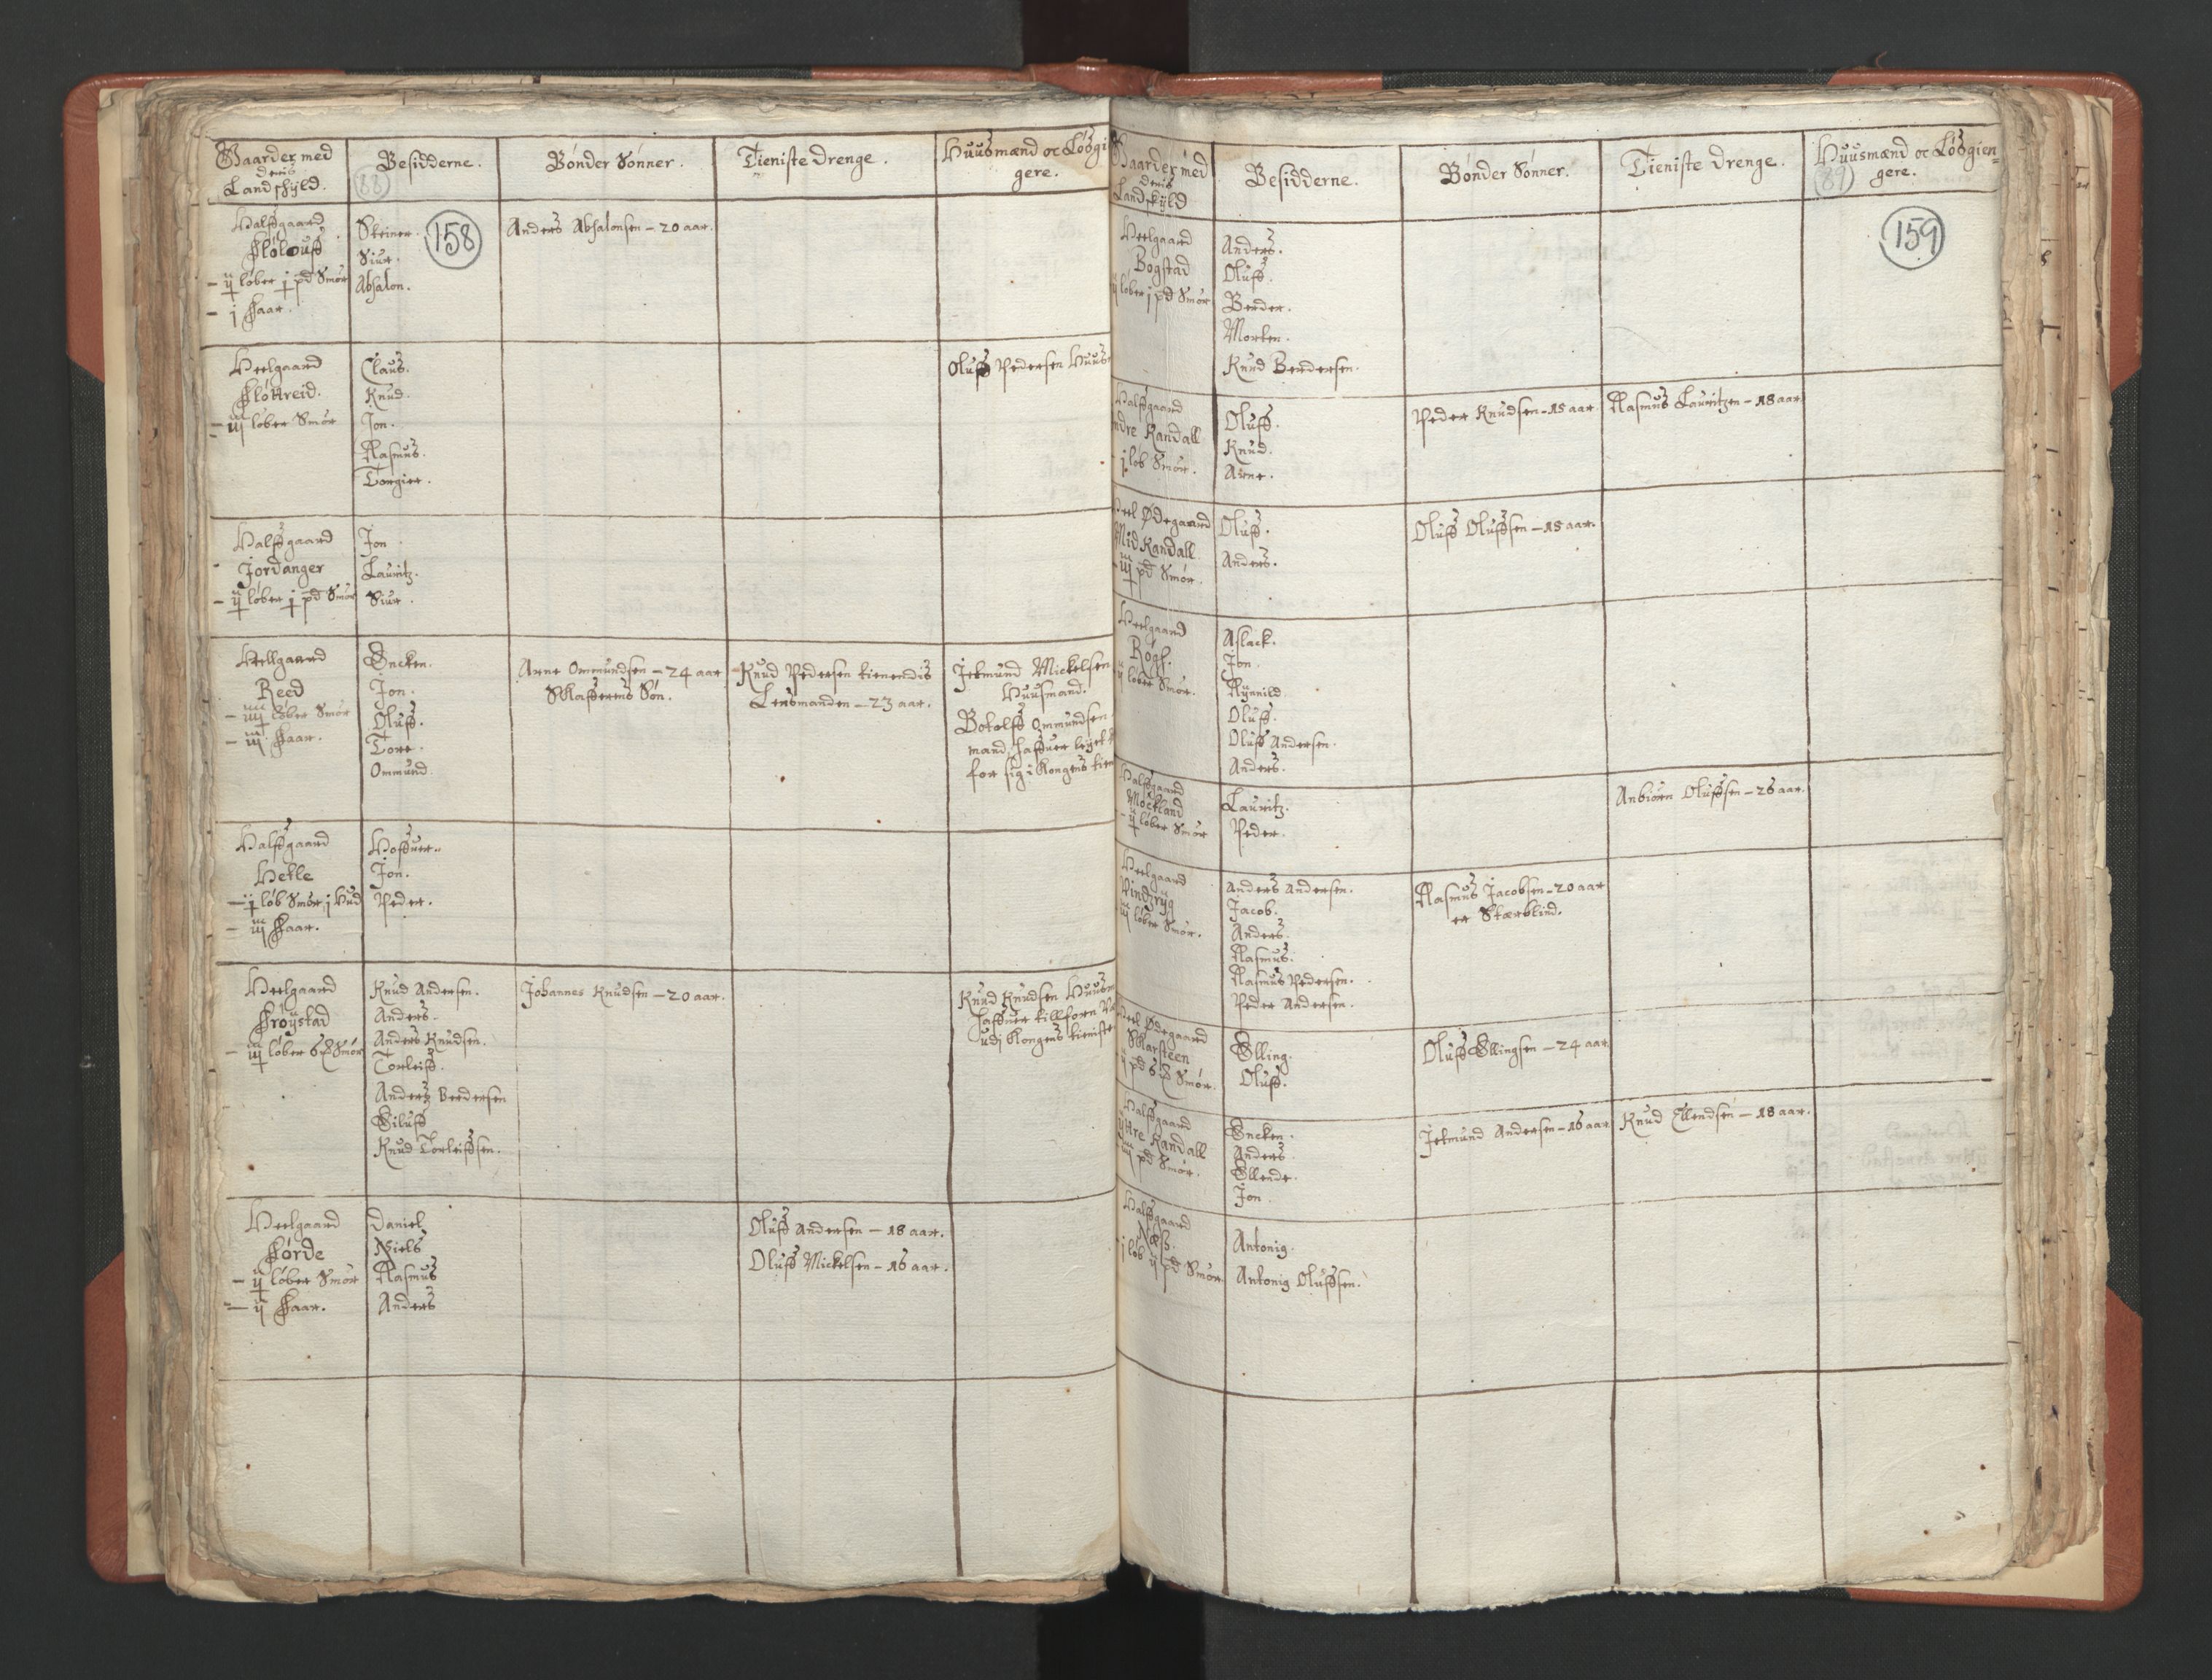 Gaarder med
deris
Landschyld.
Besidderne.
(88)
Bønder Sønner.
Tieniste Drenge.
Huusmænd oc Løsgi
gere.
158
Halffgaard
Fløloúff
– ij løber j pd Smør
– j Faar.
Steiner.
Siur.
Absalon.
Anders Absalonsen – 20 aar.
Heelgaard
Fløttreid.
– iij løber Smør
Claus.
Knud.
Jon.
Rasmus.
Torgier.
Oluff Pedersen Huus
Halffgaard
Jordanger
– ij løber j pd Smør
Jon
Lauritz.
Siur.
Heellgaard
Reed
– iiij løber Smør
– iij Faar.
Encken.
Jon.
Oluff.
Tore.
Ommund.
Arne Ommundsen – 24 aar
Skafferens Søn.
Knud Pedersen tienendis
Lensmanden – 23 aar.
Jetmund Mickelsen
Huusmand.
Botolff Ommundsen
mand, haffuer leyet
for sig i Kongens tien
Halffgaard
Hetle
– j løb Smør j Hud
– iij Faar.
Hoffuer.
Jon.
Peder.
Heelgaard
Frøystad
– iij løber 6 ℔ Smør
Knud Andersen.
Anders.
Anders Knudsen.
Torleiff.
Anders Berdersen
Eiluff
Knud Torleiffsen.
Johannes Knudsen – 20 aar.
Knud Knudsen Huusm
haffuer tillforn
udj Kongens tieniste
Heelgaard
Førde
– ij løber Smør
– ij Faar.
Daniel
Niels
Rasmus
Anders
Oluff Andersen – 18 aar.
Oluff Mickelsen – 16 aar.
Gaarder med
deris
Landskyld
Besidderne.
Bønder Sønner.
Tieniste Drenge.
Huusmænd oc Løsgien=
(89)
gere.
159
Heelgaard
Bogstad
ij løber j pd Smør
Anders.
Oluff.
Berder.
Morten.
Knud Berdersen.
Halffgaard
ndre Randall
j løb Smør.
Oluff.
Knud.
Arne.
Peder Knudsen – 15 aar
Rasmus Lauritzen – 18 aar
Heel Ødegaard
Mid Randall
– iij pd Smør.
Oluff.
Anders.
Oluff Oluffsen – 15 aar.
Heelgaard
Røgh.
ij løber Smør.
Aslack.
Jon.
Rynnild.
Oluff.
Oluff Andersen.
Anders.
Halffgaard
Møckland
– ij løber Smør
Lauritz.
Peder.
Anbiørn Oluffsen – 26 aar.
Heelgaard
Rindzryg
iij løber Smør.
Anders Andersen.
Jacob.
Anders.
Rasmus.
Rasmus Pedersen.
Peder Andersen.
Rasmus Jacobsen – 20 aar
er Stærblind.
Heel Ødegaard
Skarsteen
ij pd 6 ℔ Smør.
Elling.
Oluff.
Oluff Ellingsen – 24 aar
Halffgaard
Ÿttre Randall
iiij pd Smør.
Encken.
Anders.
Ellende.
Jon.
Jetmund Andersen – 16 aar
Knud Ellendsen – 18 aar.
Halffgaard
Næss.
j løb ij pd Smør
Antonig.
Antonig Oluffsen.